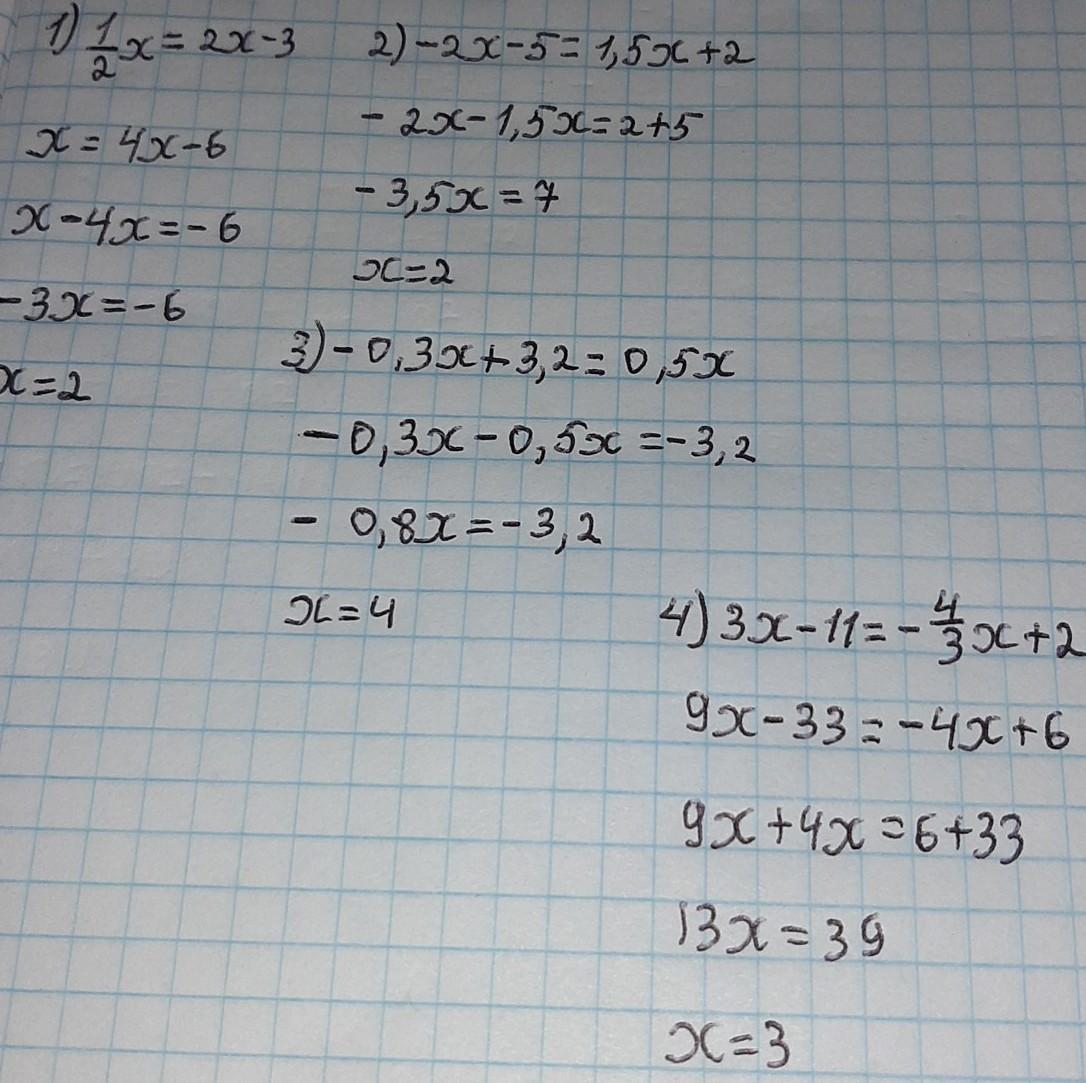 1) 1/2x=2x-3
x=4x-6
x-4x=-6
-3x=-6
x=2
2)-2x-5=1,5x+2
-2x-1,5x=2+5
-3,5x=7
x=2
3)-0,3x+3,2=0,5x
-0,3x-0,5x=-3,2
-0,8x=-3,2
x=4
4)3x-11=-4/3x+2
9x-33=-4x+6
9x+4x=6+33
13x=39
x=3